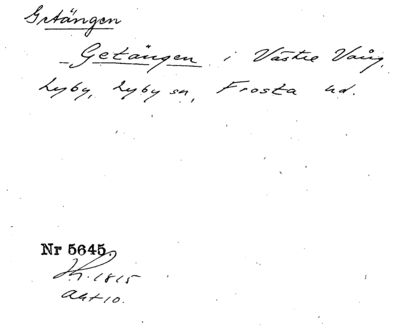 Getängen
Getängen i Västre Vång,
Lyby, Lyby sn, Frosta hd.
Nr 5645.
1815
akt 10.